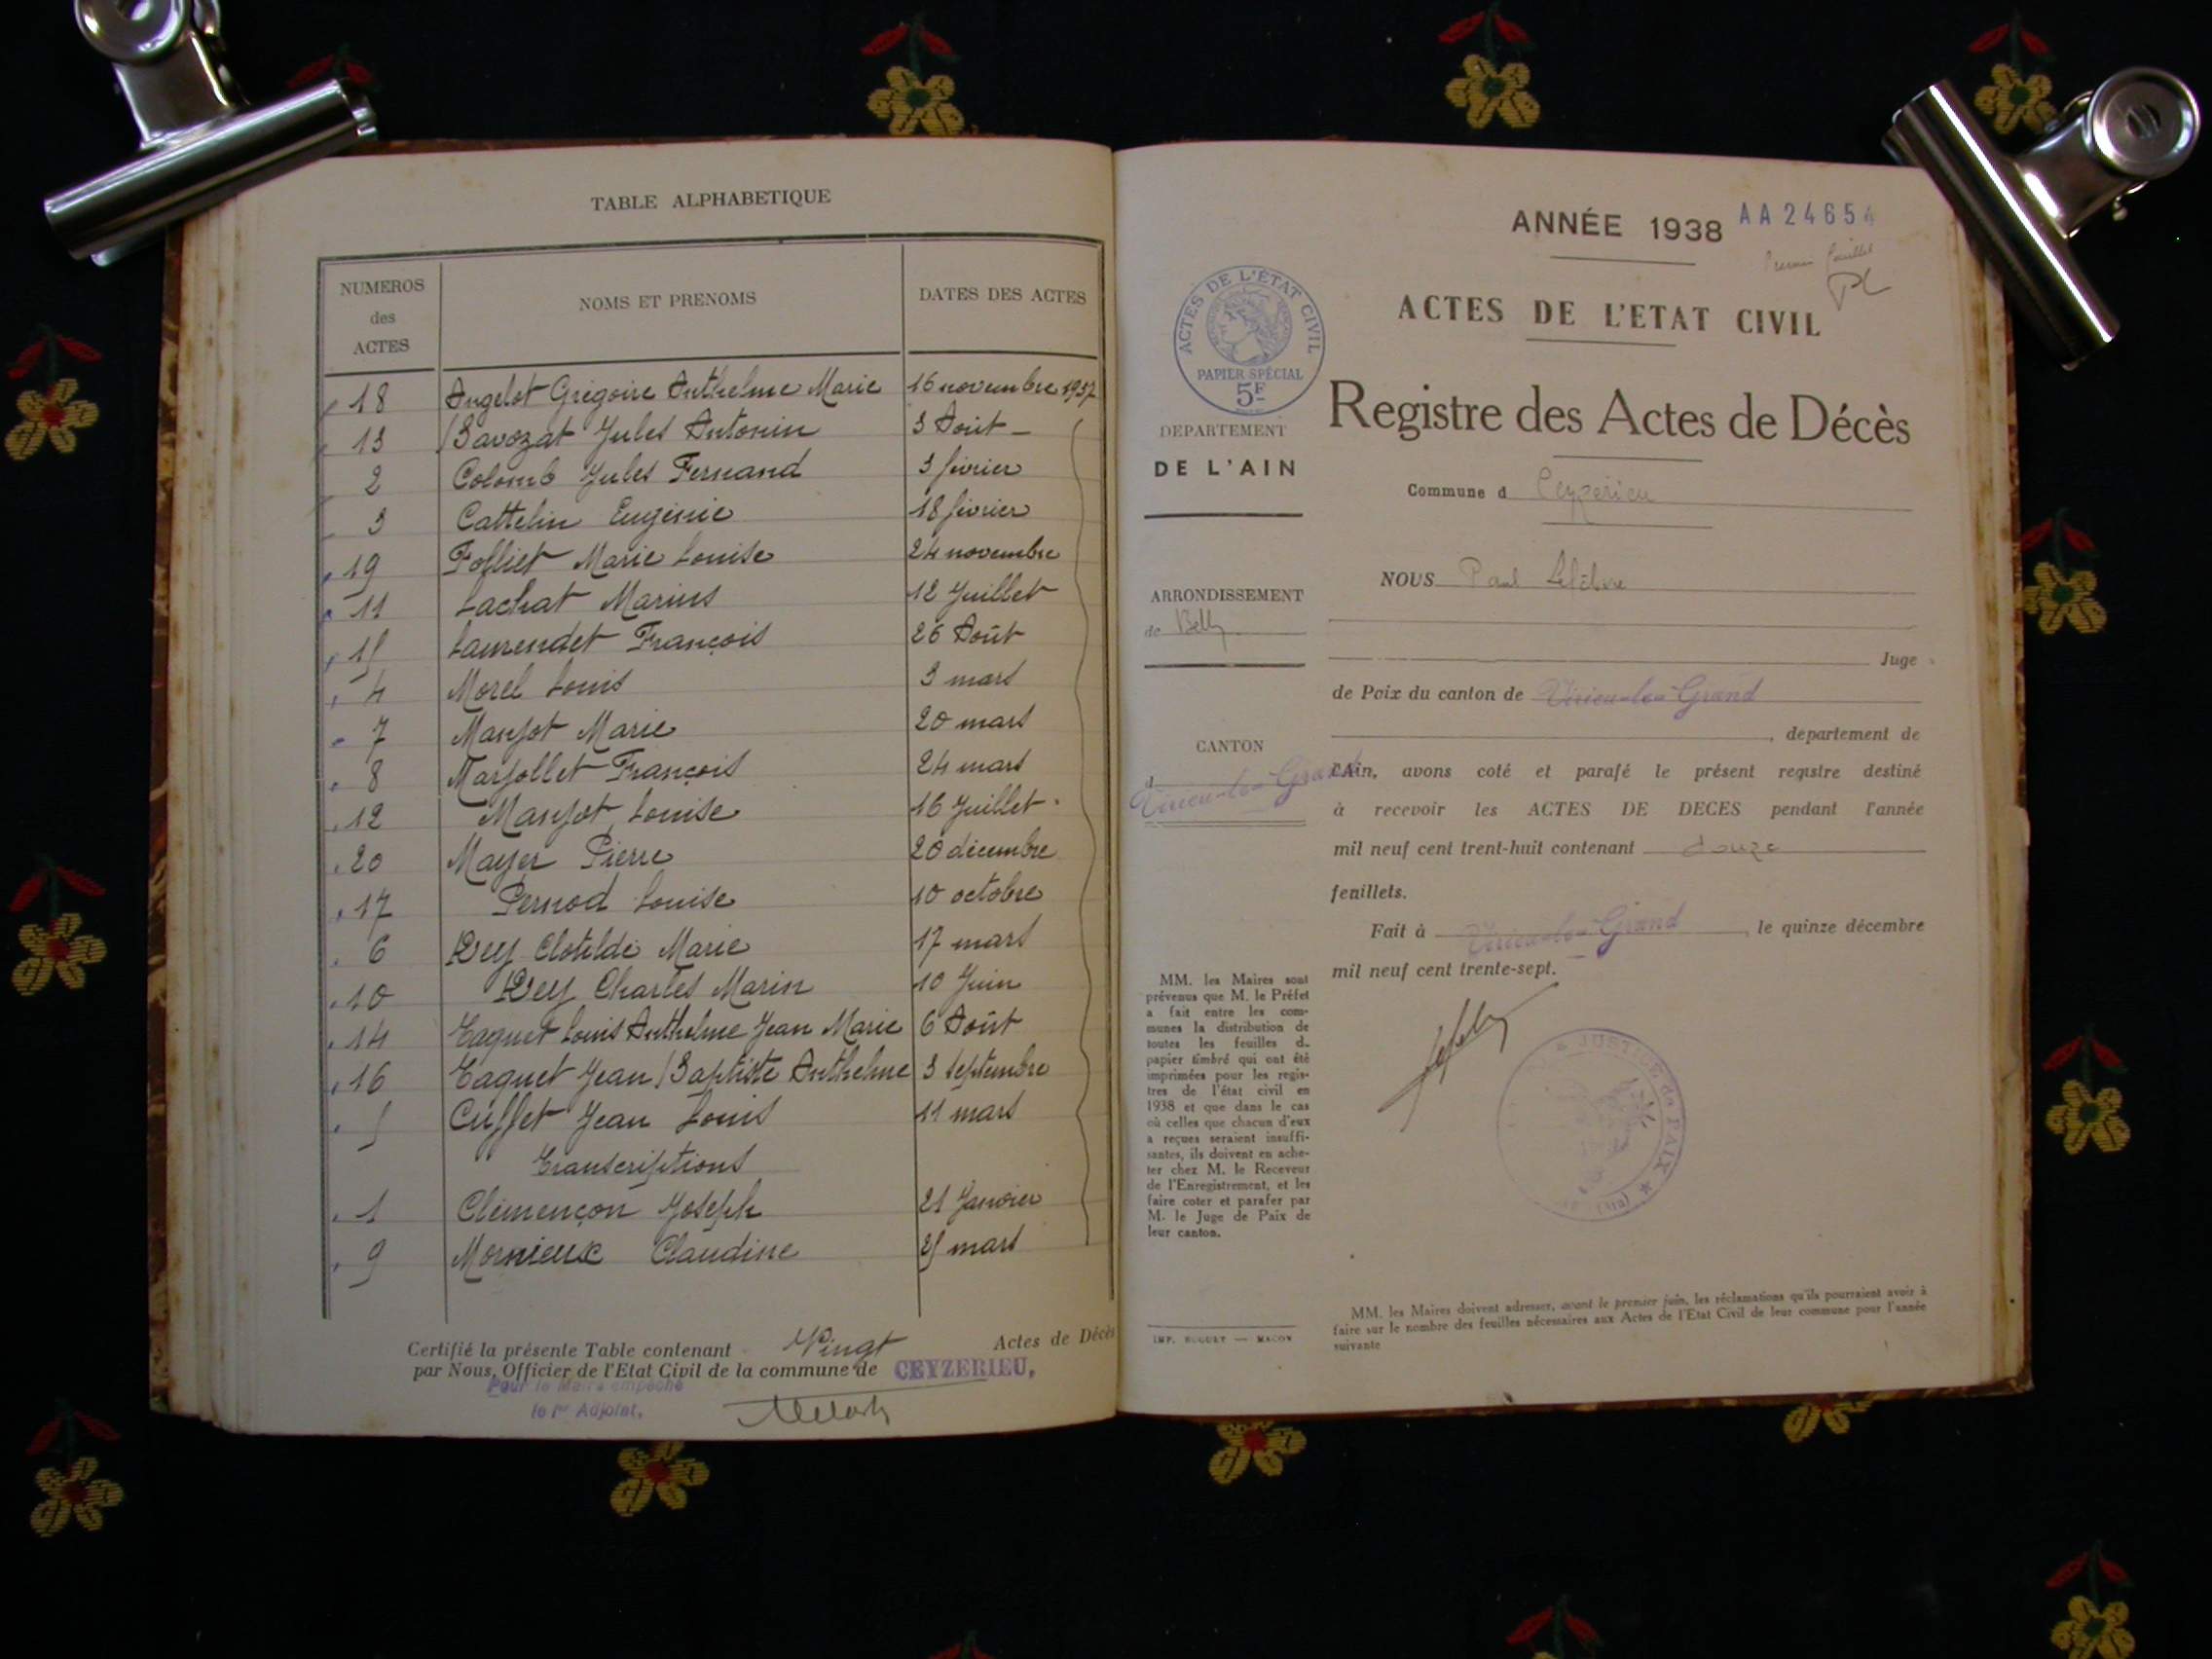 TABLE ALPHABETIQUE
NUMEROS des ACTES
NOMS ET PRENOMS
DATES DES ACTES
18 Angelot Grégoire Anthelme Marie 16 novembre 1937
13 Bavozat Jules Antonin 3 Août -
2 Colomb Jules Fernand 3 février
3 Cattelin Eugénie 18 février
19 Folliet Marie Louise 24 novembre
11 Lachat Marius 12 Juillet
15 Laurendet François 26 Août
4 Morel Louis 3 mars
7 Manjot Marie 20 mars
8 Marjollet François 24 mars
12 Manjot Louise 16 Juillet
20 Mayer Pierre 20 décembre
17 Pernod Louise 10 octobre
6 Rey Clotilde Marie 17 mars
10 Rey Charles Marin 10 Juin
14 Taquet Louis Anthelme Jean Marie 6 Août
16 Taquet Jean Baptiste Anthelme 3 septembre
5 Cuffet Jean Louis 11 mars
Transcriptions
1 Clémençon Joseph 21 Janvier
9 Mornieux Claudine 25 mars
Certifié la présente Table contenant Vingt Actes de Décès
par Nous, Officier de l'Etat Civil de la commune de CEYZERIEU,
Pour le Maire empêché
le 1er Adjoint,
ANNÉE 1938
AA 24654
Premier feuillet
PL
ACTES DE L'ETAT CIVIL
ACTES DE L'ÉTAT CIVIL
PAPIER SPÉCIAL
5F
Registre des Actes de Décès
DEPARTEMENT
DE L'AIN
Commune d Ceyzerieu
NOUS Paul Lefebvre
ARRONDISSEMENT
de Belley
Juge
de Paix du canton de Virieu-le-Grand
, departement de
CANTON
d Virieu-le-Grand
l'Ain, avons coté et parafé le présent registre destiné
à recevoir les ACTES DE DECES pendant l'année
mil neuf cent trent-huit contenant douze
feuillets.
Fait à Virieu-le-Grand, le quinze décembre
mil neuf cent trente-sept.
MM. les Maires sont
prévenus que M. le Préfet
a fait entre les com-
munes la distribution de
toutes les feuilles d.
papier timbré qui ont été
imprimées pour les regis-
tres de l'état civil en
1938 et que dans le cas
où celles que chacun d'eux
a reçues seraient insuffi-
santes, ils doivent en ache-
ter chez M. le Receveur
de l'Enregistrement, et les
faire coter et parafer par
M. le Juge de Paix de
leur canton.
JUSTICE de PAIX
(Ain)
IMP. BUGUET — MACON
MM. les Maires doivent adresser, avant le premier juin, les réclamations qu'ils pourraient avoir à
faire sur le nombre des feuilles nécessaires aux Actes de l'Etat Civil de leur commune pour l'année
suivante